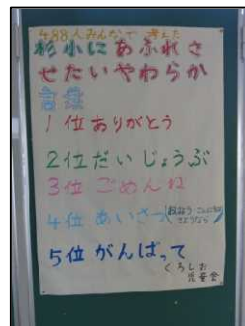 488人みんなで考えた
杉小にあふれさ
せたいやわらか
言葉
1位ありがとう
2位だいじょうぶ
3位ごめんね
4位あいさつ
5位がんばって
くろしお
児童会